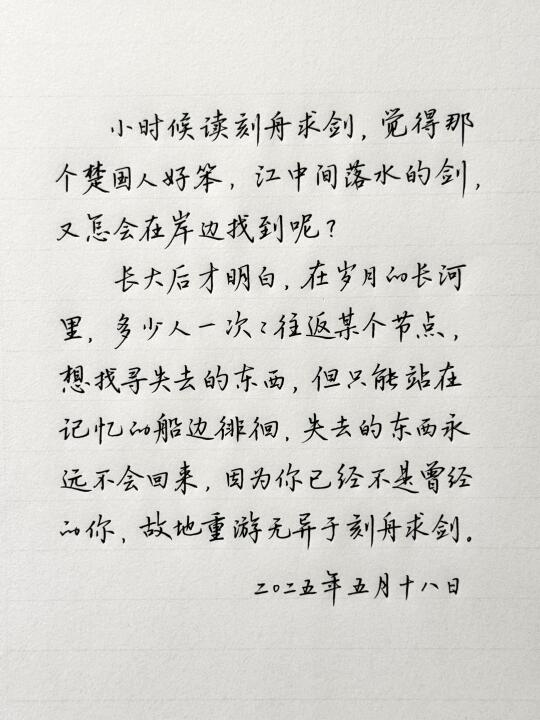 小时候读刻舟求剑，觉得那
个楚国人好笨，江中间落水的剑，
又怎会在岸边找到呢？
长大后才明白，在岁月的长河
里，多少人一次〻往返某个节点，
想找寻失去的东西，但只能站在
记忆的船边徘徊，失去的东西永
远不会回来，因为你已经不是曾经
的你，故地重游无异于刻舟求剑。
二〇二五年五月十八日